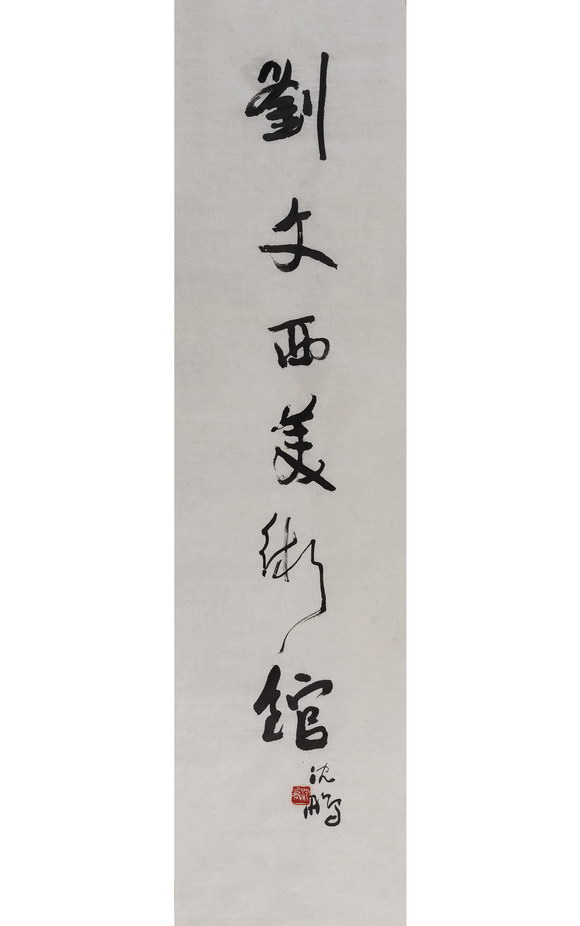 劉文西美術館
沈鵬